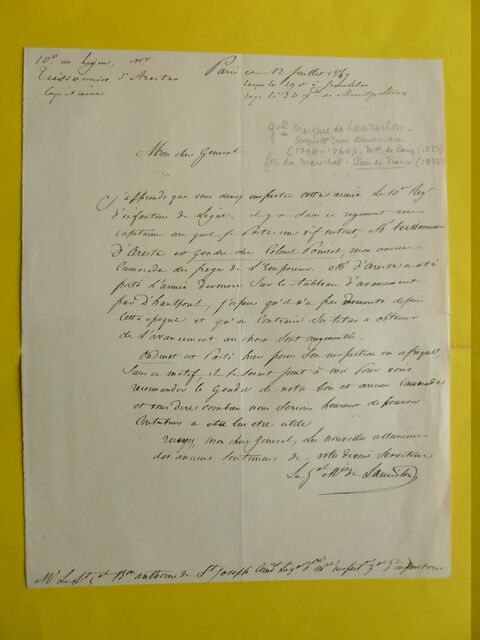 10e de Ligne Mr
Teissonnier d'Areste
Capitaine
Paris ce 12 Juillet 1847
reçu le 19
gal Marquis de Lauriston
Auguste Jean Alexandre
(1790-1860) - Mal de Camp (1823)
fils du Maréchal - Pair de France (1828)
Mon cher Général
J'apprends que vous devez inspecter cette année le 10e Regt
d'infanterie de Ligne. il y a dans ce regiment un
capitaine au quel je porte un vif interet. Mr teissonnier
D'Areste est gendre du Colonel mon ancien
Camarade des pages de l'Empereur. Mr D'Areste a été
porté l'année derniere sur le tableau d'avancement
par d'hautpoul, j'espere qu'il n'a pas démérité depuis
cette époque et qu'au Contraire ses titres a obtenir
de l'avancement au choix sont augmentés.
Oudinot est parti hier pour son inspection en
Sans ce motif il se serait joint à moi pour vous
recommander le Gendre de notre bon et ancien Camarade
et vous dire combien nous serions heureux de pouvoir
Contribuer a lui etre utile
recevez, mon cher général, les nouvelles assurances
des anciens sentimens de votre devoué serviteur
Le gal Mis de Lauriston
Mr Le Lt gal Bon anthoine de St Joseph